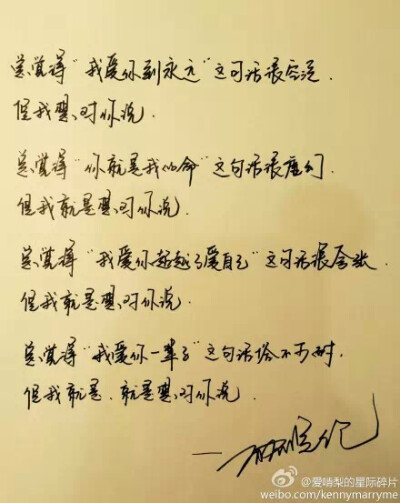 总觉得“我爱你到永远”这句话很空泛.
但我想对你说.
总觉得“你就是我的命”这句话很虚幻.
但我就是想对你说.
总觉得“我爱你超越了爱自己”这句话很夸张
但我就是想对你说.
总觉得“我爱你一辈子”这句话俗不可耐.
但我就是.就是想对你说.
@爱峭梨的星际碎片
weibo.com/kennymarryme